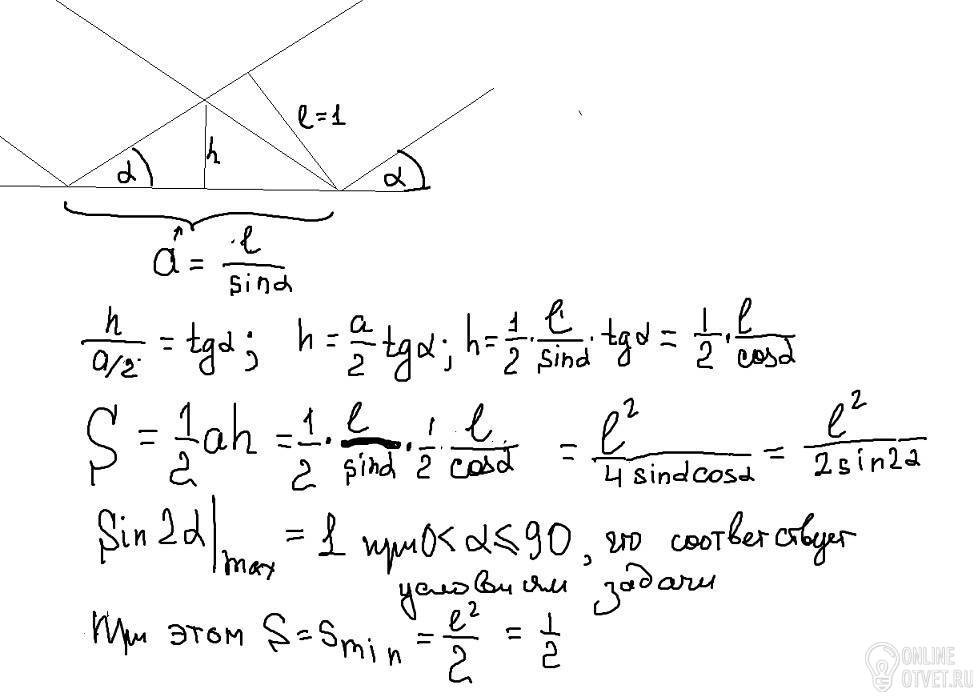 l=1
h
α
α
a = l/sinα
h/(a/2) = tgα; h = a/2 tgα; h = 1/2 · l/sinα · tgα = 1/2 · l/cosα
S = 1/2 ah = 1/2 · l/sinα · 1/2 · l/cosα = l²/(4 sinα cosα) = l²/(2 sin2α)
Sin 2α|max = 1 при 0<α≤90, что соответствует
условиям задачи
При этом S = Smin = l²/2 = 1/2
ONLINE
OTVET.RU